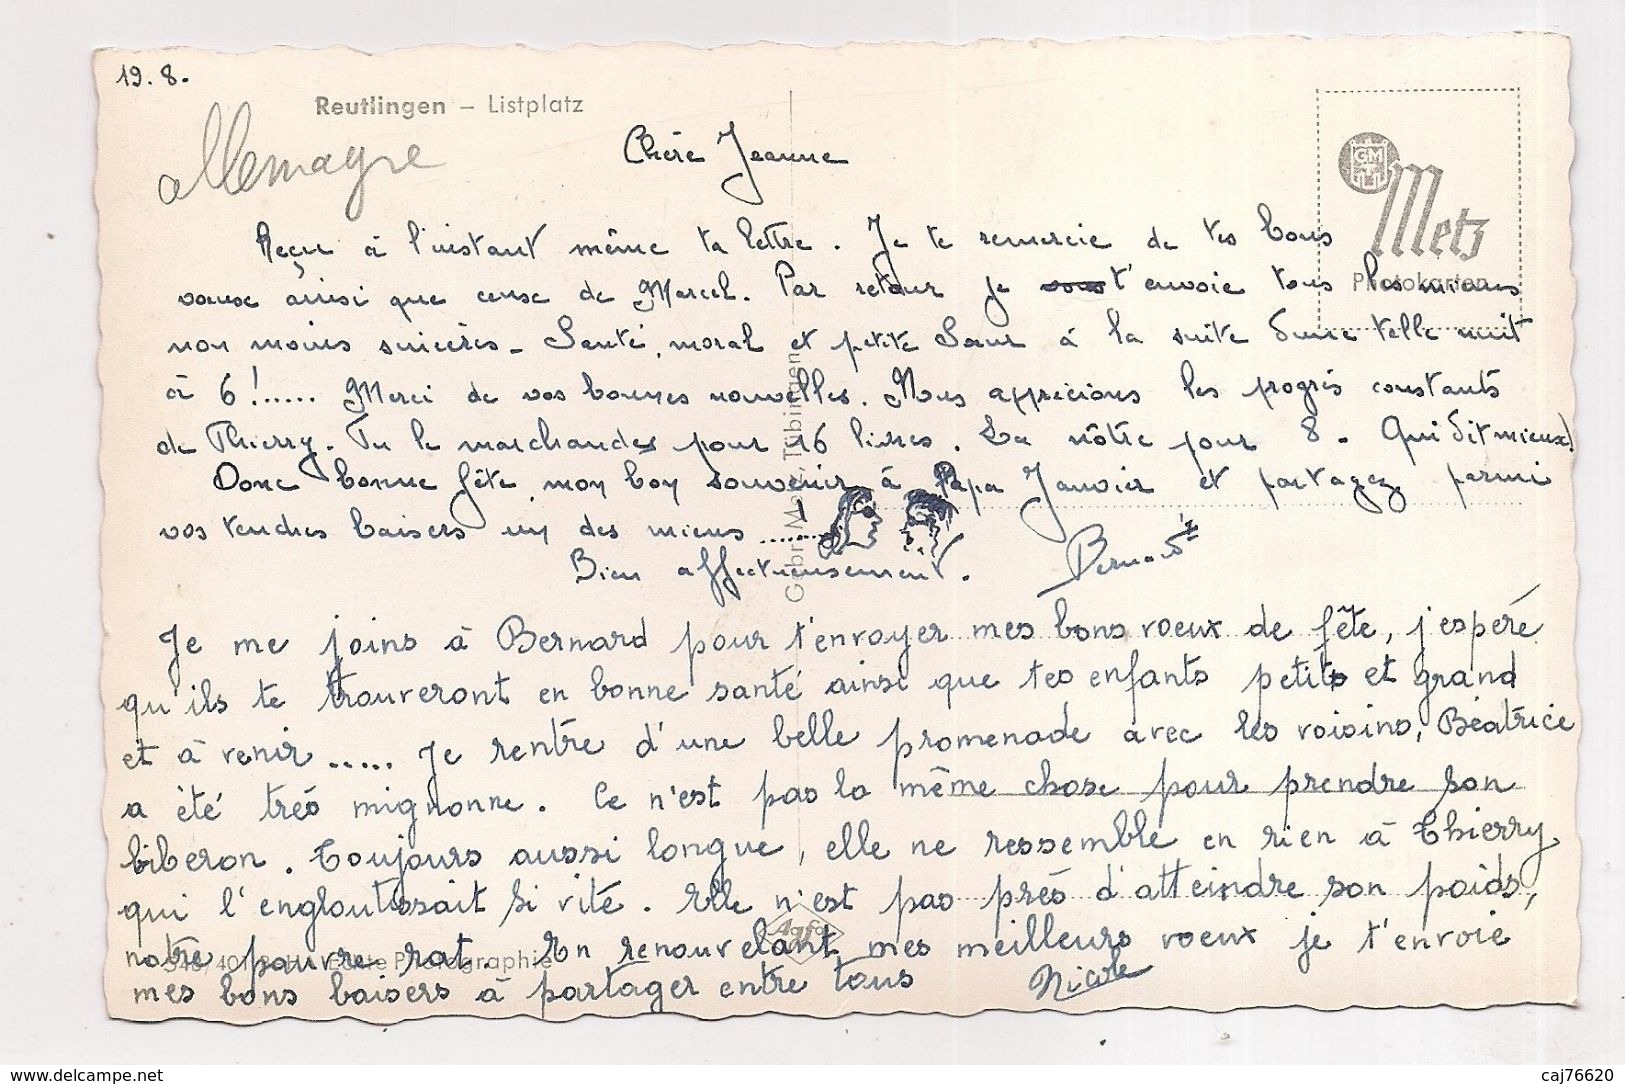 19.8.
Reutlingen – Listplatz
Allemagne
Chère Jeanne
Reçu à l'instant même ta lettre. Je te remercie de tes bons
voeux ainsi que ceux de Marcel. Par retour je t'envoie tous les miens
non moins sincères - Santé, moral et petite Soeur à la suite d'une telle nuit
à 6 !..... Merci de vos bonnes nouvelles. Nous apprécions les progrès constants
de Thierry. Tu le marchandes pour 16 livres. La nôtre pour 8. Qui dit mieux!
Donc bonne fête, mon bon souvenir à Papa Janvier et partagez parmi
vos tendres baisers un des miens .......
Bien affectueusement. Bernard
Je me joins à Bernard pour t'envoyer mes bons voeux de fête, j'espère
qu'ils te trouveront en bonne santé ainsi que tes enfants petits et grand
et à venir ..... Je rentre d'une belle promenade avec les voisins, Béatrice
a été très mignonne. Ce n'est pas la même chose pour prendre son
biberon. Toujours aussi longue, elle ne ressemble en rien à Thierry
qui l'engloutissait si vite. Elle n'est pas près d'atteindre son poids,
notre pauvre rat. En renouvelant mes meilleurs voeux je t'envoie
mes bons baisers à partager entre tous Nicole
GMT
Metz
Photokarten
Gebr. Metz, Tübingen
Agfa
Echte Photographie
www.delcampe.net
caj76620